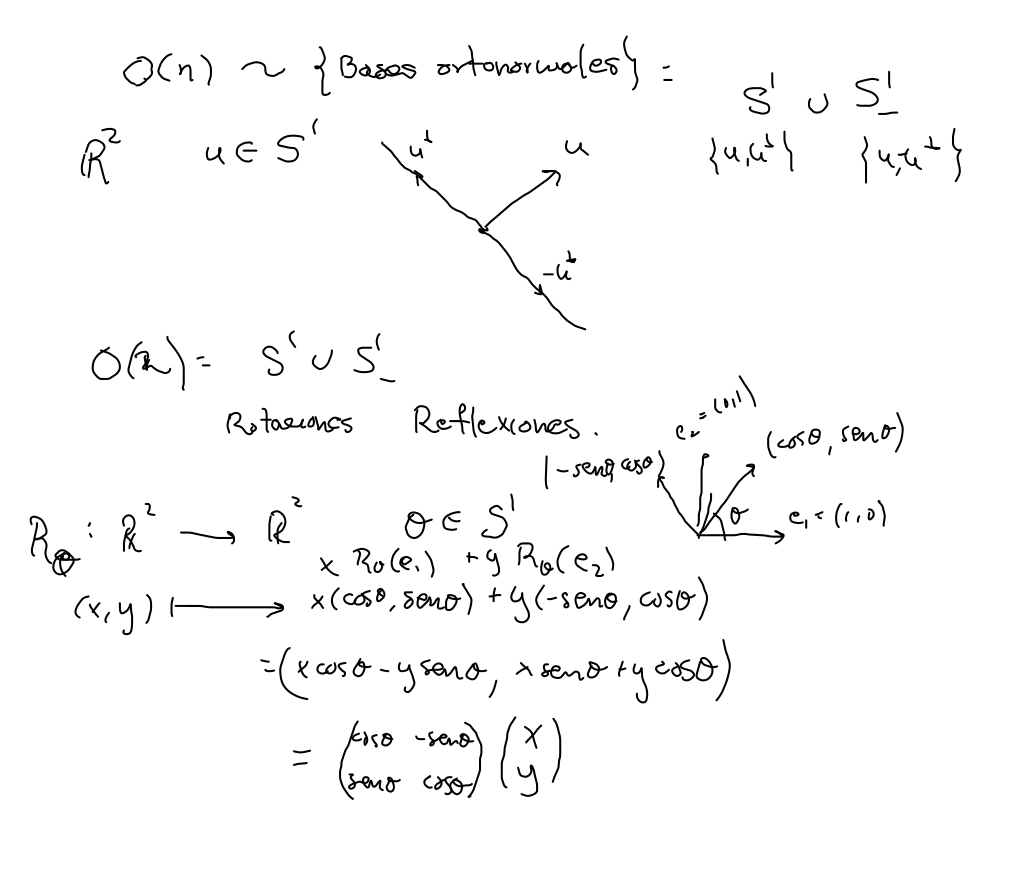 O(n) ~ {Bases ortonormales} =
S¹ ∪ S¹₋
ℝ² u ∈ S¹
u^⊥ u
{u,u^⊥} {u,-u^⊥}
-u^⊥
O(2) = S¹ ∪ S¹₋
Rotaciones Reflexiones.
e₂=(0,1)
(cosθ, senθ)
(-senθ, cosθ)
θ e₁=(1,0)
R_θ : ℝ² → ℝ² θ ∈ S¹
x R_θ(e₁) + y R_θ(e₂)
(x,y) ↦ x(cosθ, senθ) + y(-senθ, cosθ)
=(x cosθ - y senθ, x senθ + y cosθ)
= (cosθ -senθ) (x)
(senθ cosθ) (y)